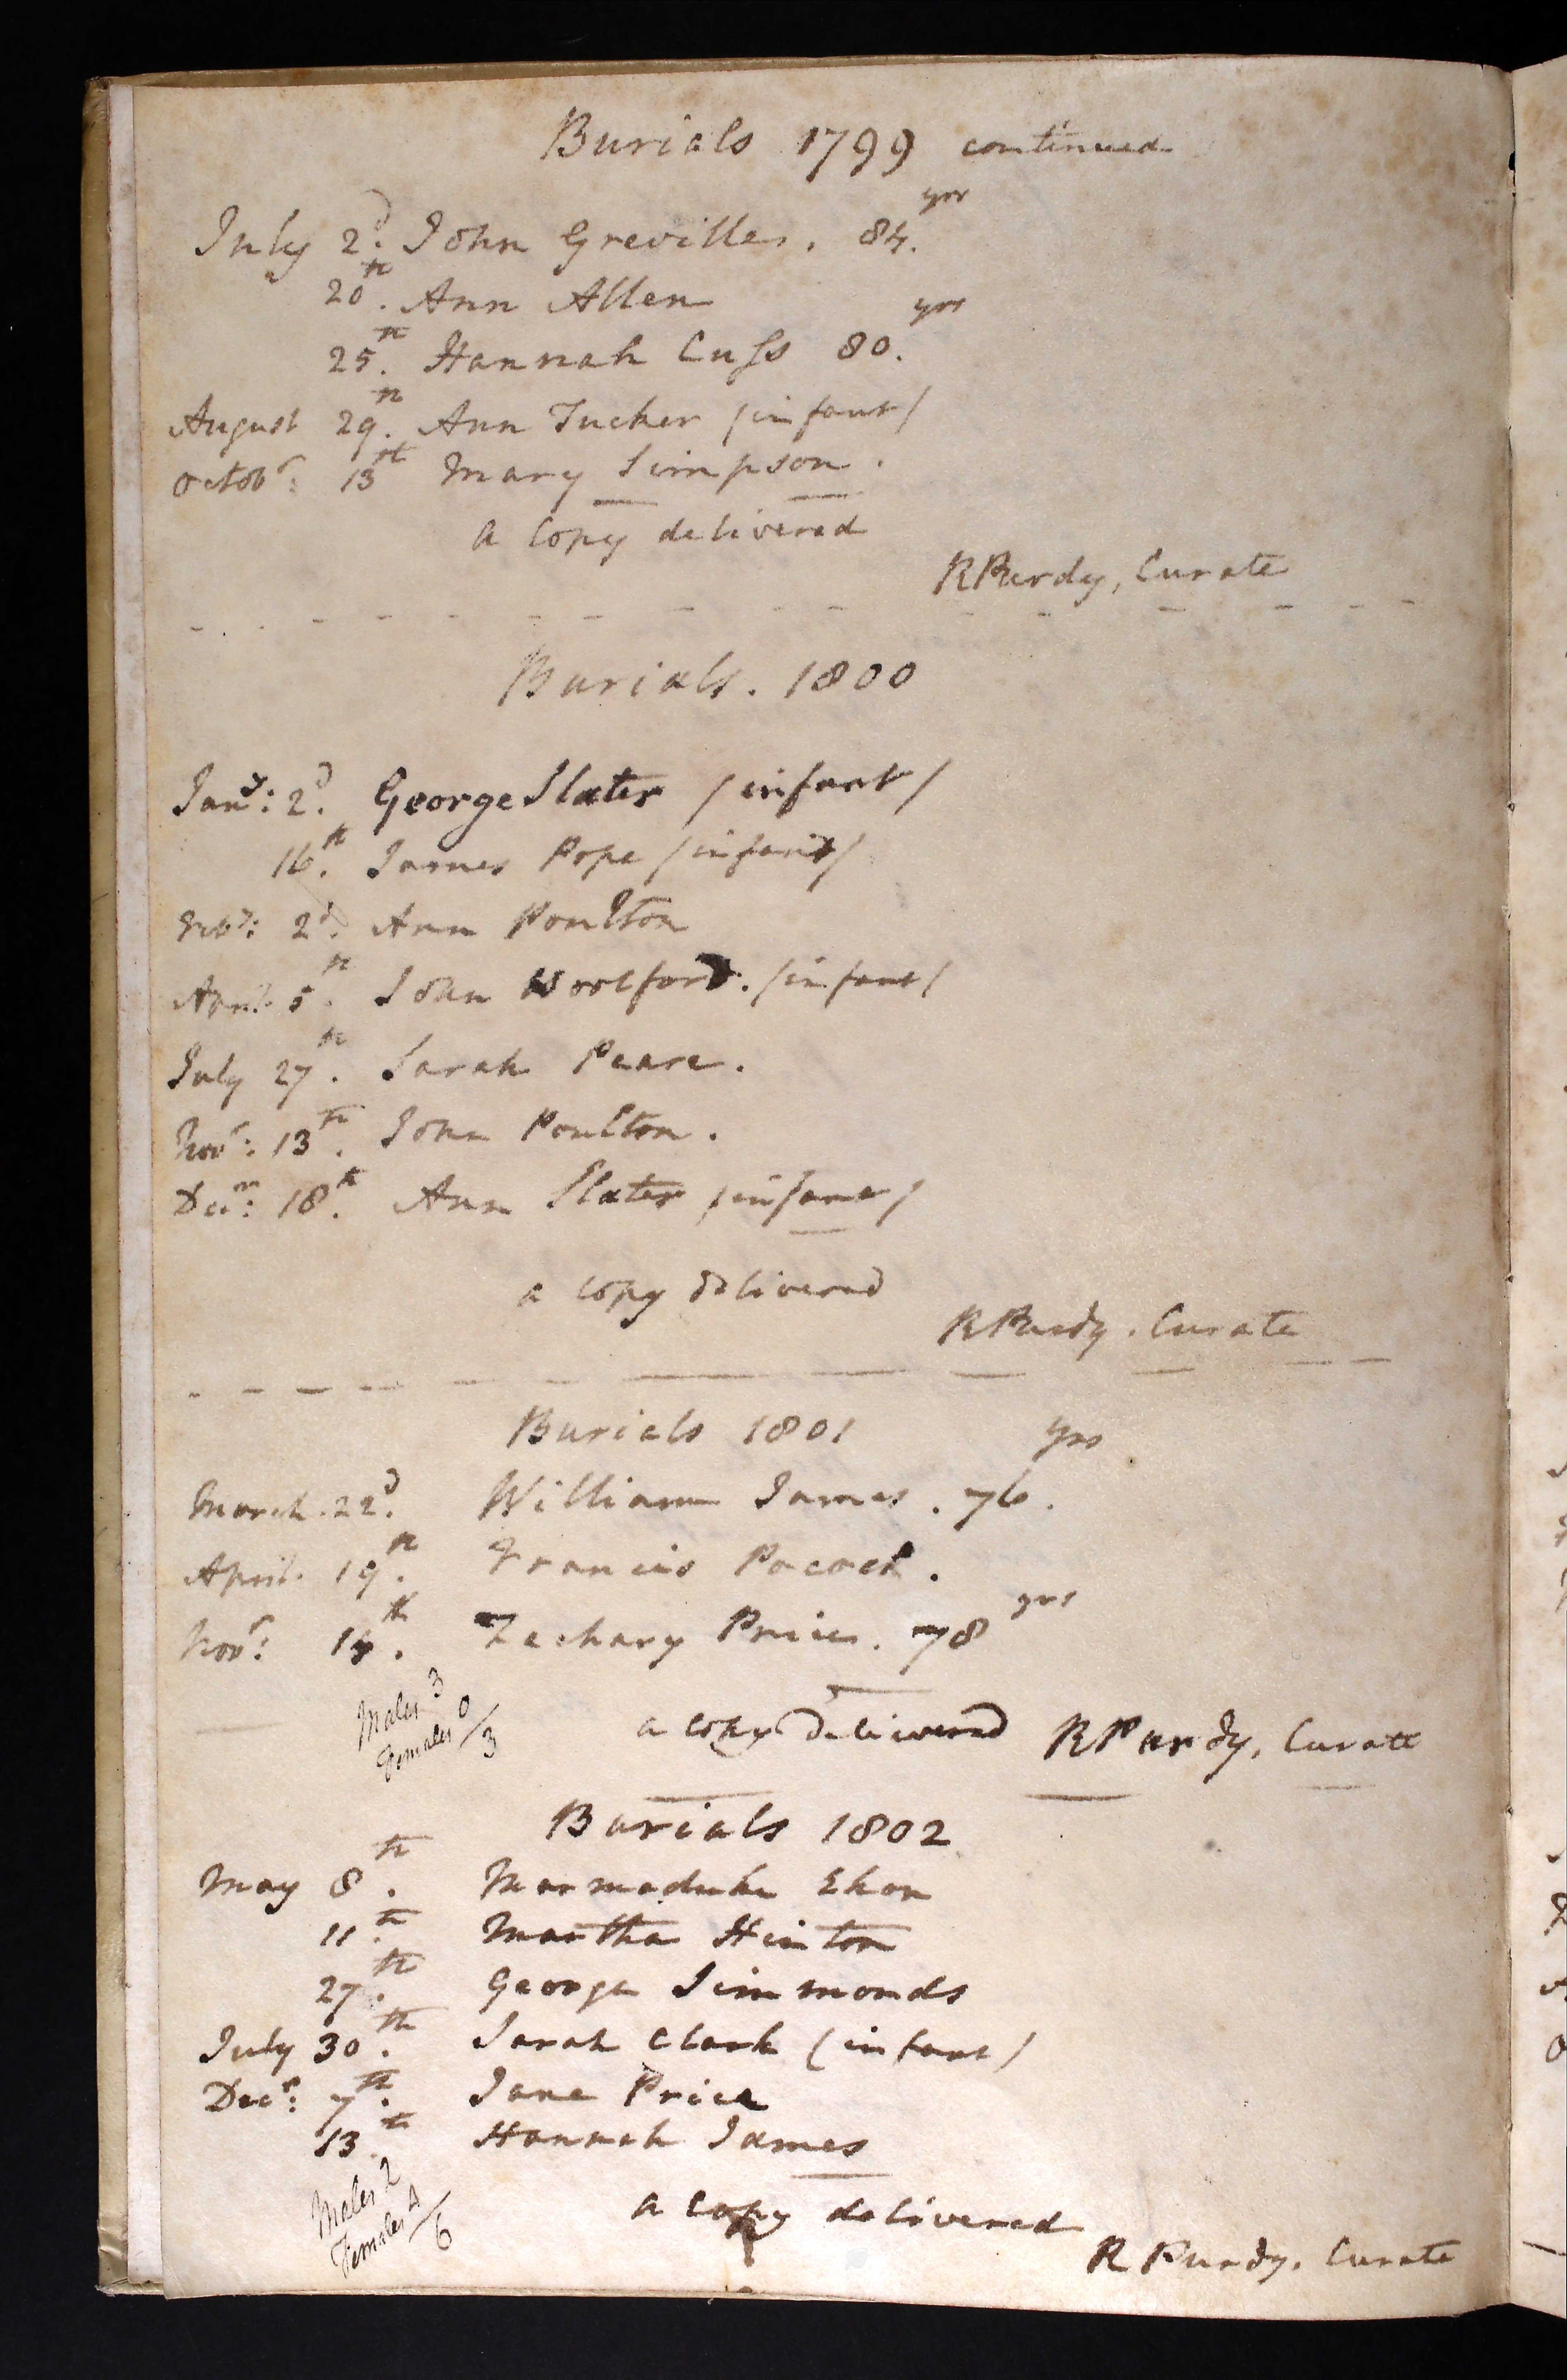 Burials 1799 continued
July 2d. John Grevilles. 84. yrs
20th. Ann Allen
25th. Hannah Cuſs 80. yrs
August 29th. Ann Tucker /infant/
Octobr: 13th Mary Simpson.
a Copy delivered
R Purdy, Curate
Burials. 1800
Jany: 2d. George Slater /infant/
16th. James Pope /infant/
Feby: 2d. Ann Poulton
April 5th. John Woolford. /infant/
July 27th. Sarah Peare.
Novr: 13th. John Poulton.
Decm: 18th. Ann Slater /infant/
a Copy delivered
R Purdy. Curate
Burials 1801
March. 22d. William James. 76. yrs
April 19th. Francis Pocock.
Novr: 14th. Zachary Price. 78 yrs
Males 3
Females 0
3
a Copy delivered R Purdy, Curate
Burials 1802
May 8th. Marmaduke Ekon
11th. Martha Hinton
27th. George Simmonds
July 30th. Sarah Clark (infant/
Decr: 7th. Jane Price
13th Hannah James
Males 2
Females 4
6
a Copy delivered
R Purdy. Curate